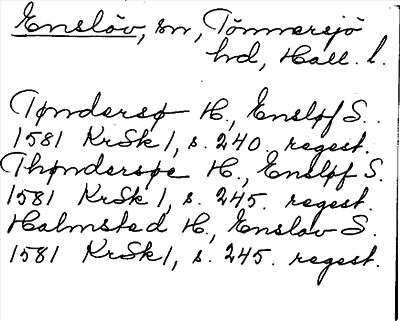 Enslöv, sn, Tönnersjö
hd, Hall. l.
Tøndersø H., Ensløf S.
1581 KrSk 1, s. 240. regest.
Thønderspe H., Ensløf S.
1581 KrSk 1, s. 245. regest.
Halmsted H., Enslov S.
1581 KrSk 1, s. 245. regest.